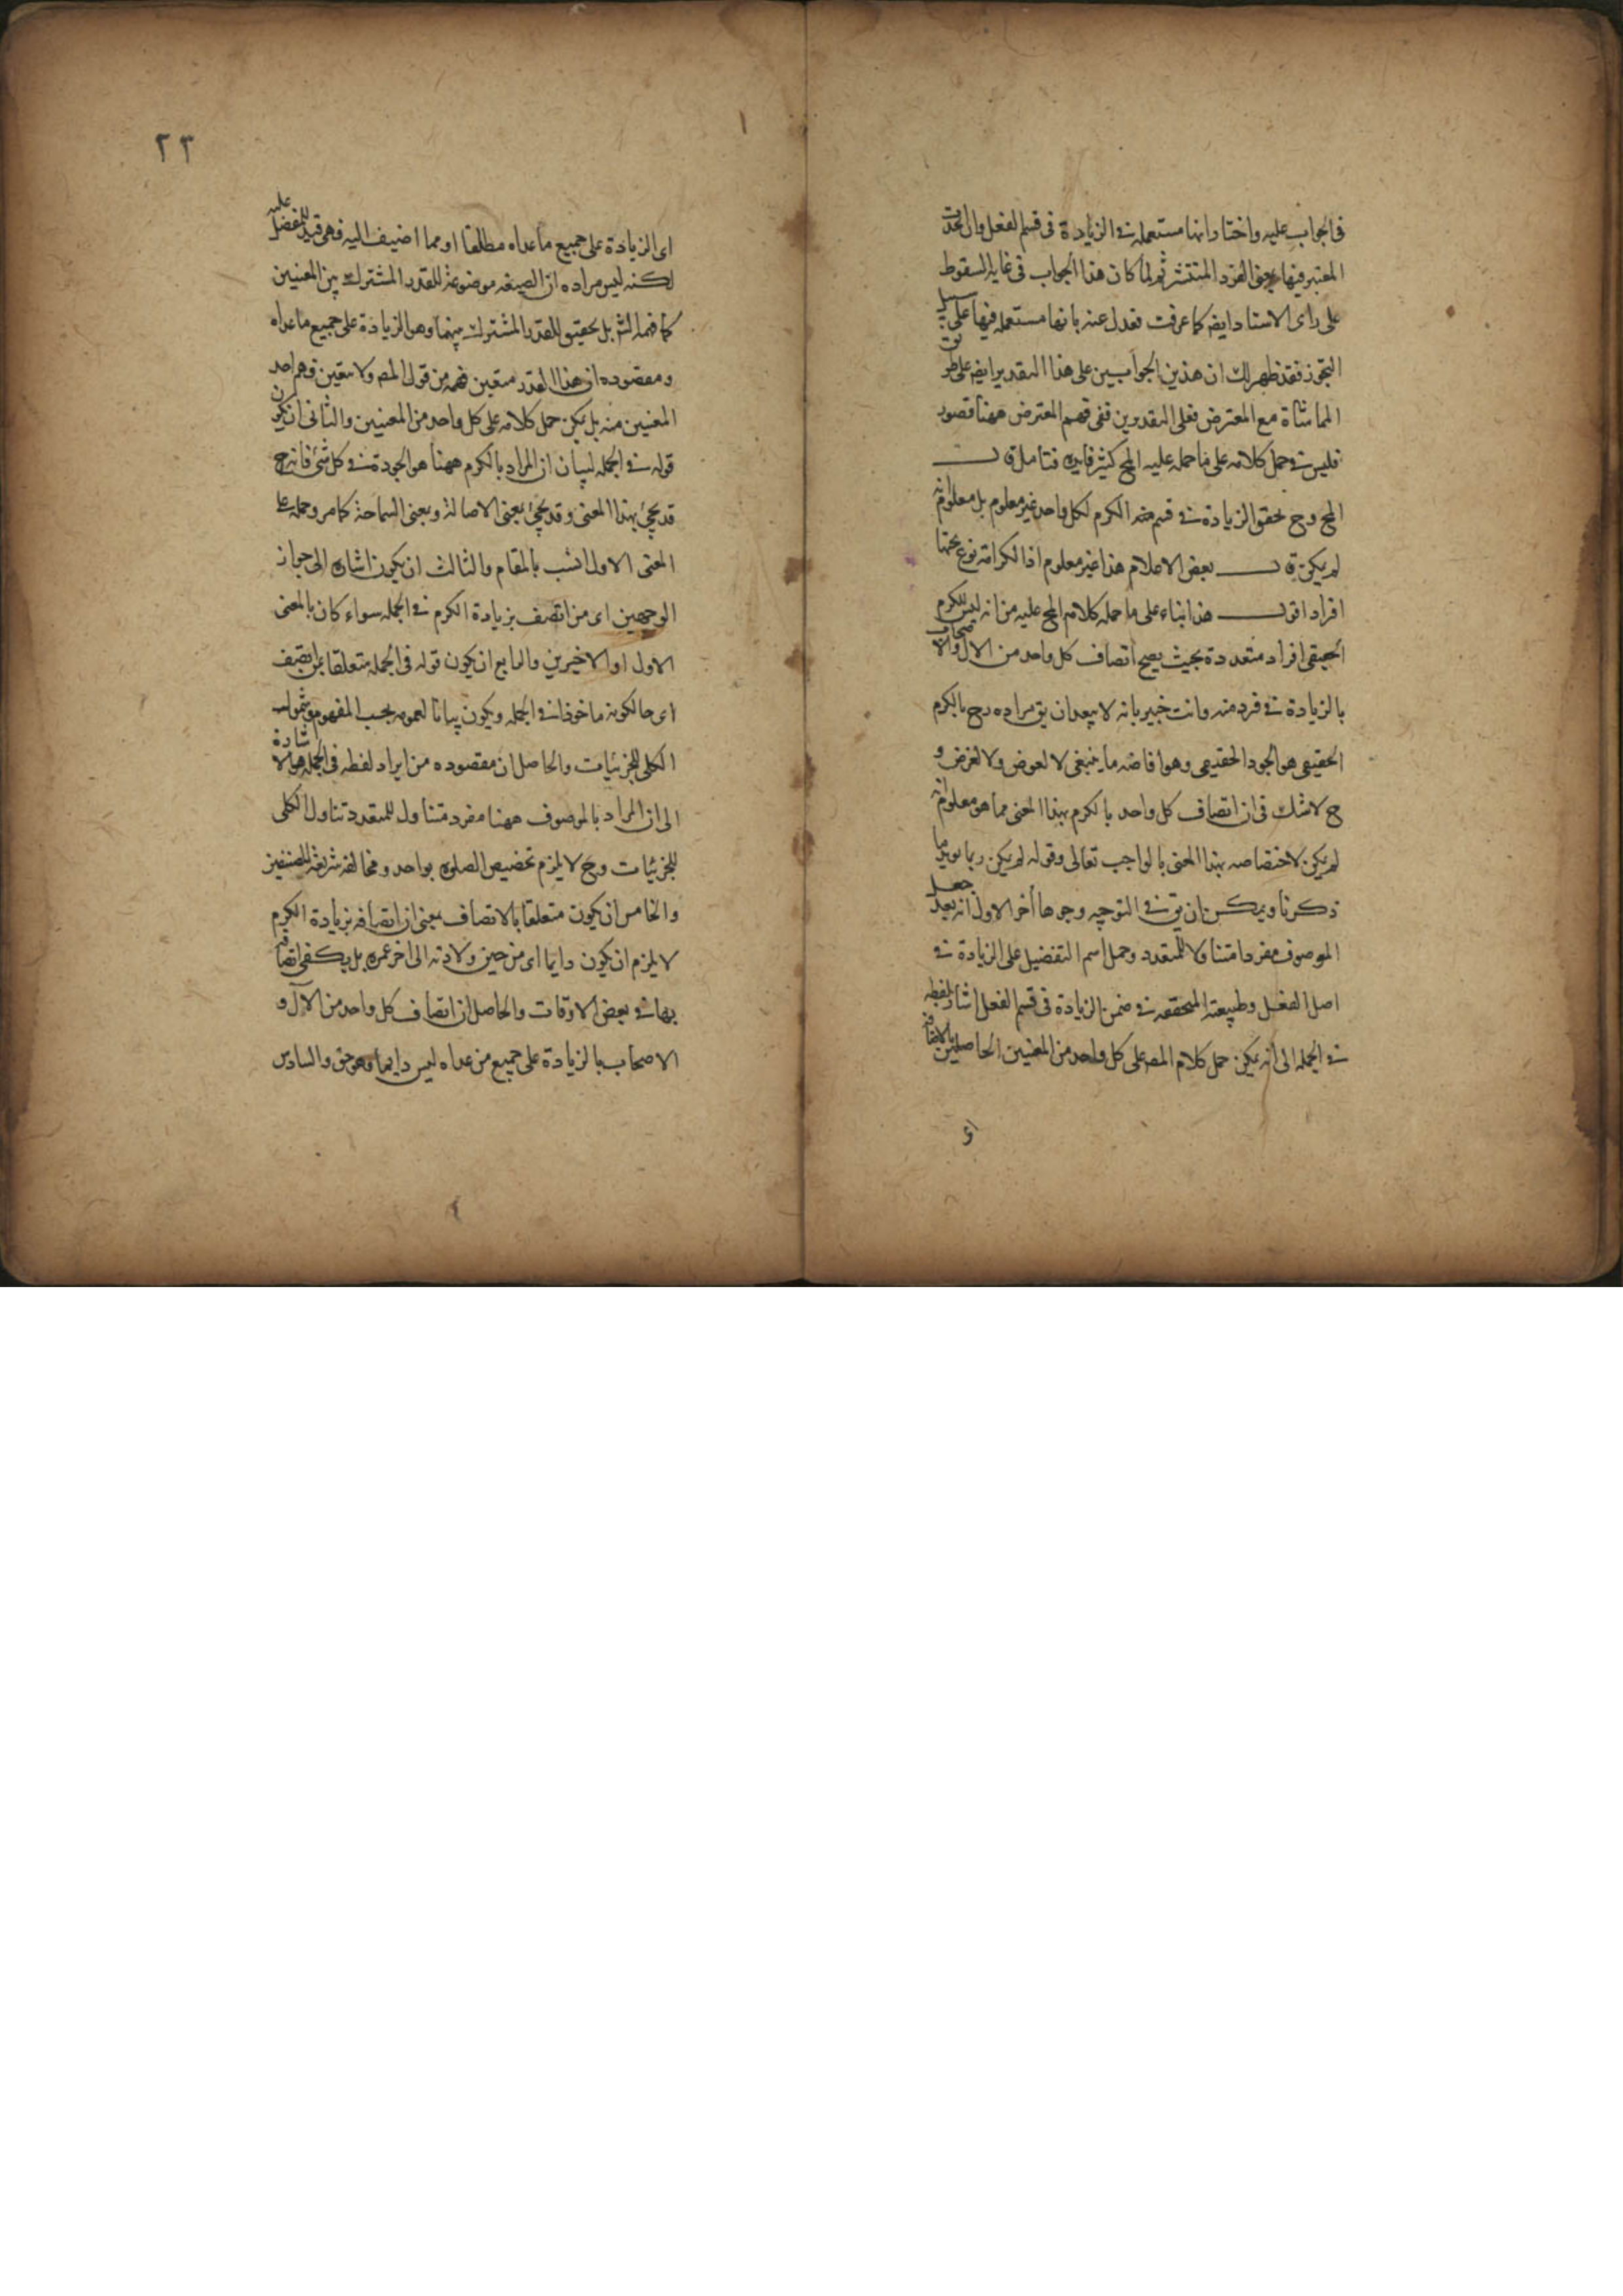 فى الجواب عليه واختار انها مستعملة فى الزيادة فى قسم الفعل وان الحدث
المعتبر فيها بمعنى الفرد المنتشر ثم لما كان هذا الجواب فى غاية السقوط
على راى الاستاد ايضه كما عرفت فعدل عنه بانها مستعملة فيها على سبيل
التجوز فقد ظهر لك ان هذين الجوابين على هذا التقدير ايضه على طريق
المماشاة مع المعترض فعلى التقديرين ففى فهم المعترض ههنا قصور
فليس فى حمل كلامه على ما حمله عليه المح كثير فايدة فتأمل قـــال
المح وح تحقق الزيادة فى قسم من الكرم لكل واحد غير معلوم بل معلوم انه
لم يكن قـــال بعض الاعلام هذا غير معلوم اذ الكرامة نوع تحتها
افراد اقول هذا بناء على ما حمله كلام المح عليه من انه ليس للكرم
الحقيقى افراد متعددة بحيث يصح اتصاف كل واحد من الال والاصحاب
بالزيادة فى فرد منه وانت خبير بانه لا يبعد ان يق مراده رح بالكرم
الحقيقى هو الجود الحقيقى وهو افاضه ما ينبغى لا لعوض ولا لغرض و
ح لا شك فى ان اتصاف كل واحد بالكرم بهذا المعنى مما هو معلوم انه
لم يكن لاختصاصه بهذا المعنى بالواجب تعالى وقوله لم يكن ربما يؤيد ما
ذكرنا ويمكن ان يق فى التوجيه وجوها أخر الاول انه بعد جعل
الموصوف مفردا متناولا للمتعدد وحمل اسم التفضيل على الزيادة فى
اصل الفعل وطبيعته المتحققه فى ضمن الزيادة فى قسم الفعل اشار بلفظه
فى الجمله الى انه يمكن حمل كلام المصه على كل واحد من المعنيين الحاصلين بالاضافة
اى
٢٣
اى الزيادة على جميع ما عداه مطلقا او مما اضيف اليه فهى قيد للمفضل عليه
لكنه ليس مراده ان الصيغه موضوعة للقدر المشترك بين المعنيين
كما فهمه الشر بل تحقيق للقدر المشترك بينهما وهو الزيادة على جميع ما عداه
ومقصوده ان هذا القدر متعين فهمه من قول المصه ولا يتعين فهم احد
المعنيين منه بل يمكن حمل كلامه على كل واحد من المعنيين والثانى ان يكون
قوله فى الجمله لبيان ان المراد بالكرم ههنا هو الجودة فى كل شئ فانه ح
قد يجئ بهذا المعنى وقد يجئ بمعنى الاصالة وبمعنى السماحة كما مر وحمله على
المعنى الاول انسب بالمقام والثالث ان يكون اشارة الى جواز
الوجهين اى من اتصف بزيادة الكرم فى الجمله سواء كان بالمعنى
الاول او الاخيرين والرابع ان يكون قوله فى الجمله متعلقا بمن اتصف
اى حالكونه ماخوذا فى الجمله ويكون بيانا لعمومه بحسب المفهوم وشموله
الكلى للجزئيات والحاصل ان مقصوده من ايراد لفظه فى الجمله هو الاشارة
الى ان المراد بالموصوف ههنا مفرد متناول للمتعدد تناول الكلى
للجزئيات وح لا يلزم تخصيص الصلوة بواحد ومخالفه شريفه للصنفين
والخامس ان يكون متعلقا بالاتصاف بمعنى ان اتصافه بزيادة الكرم
لا يلزم ان يكون دايما اى من حين ولادته الى اخر عمره بل يكفى اتصافه
بها فى بعض الاوقات والحاصل ان اتصاف كل واحد من الآل و
الاصحاب بالزيادة على جميع من عداه ليس دايما وهو حق والسادس